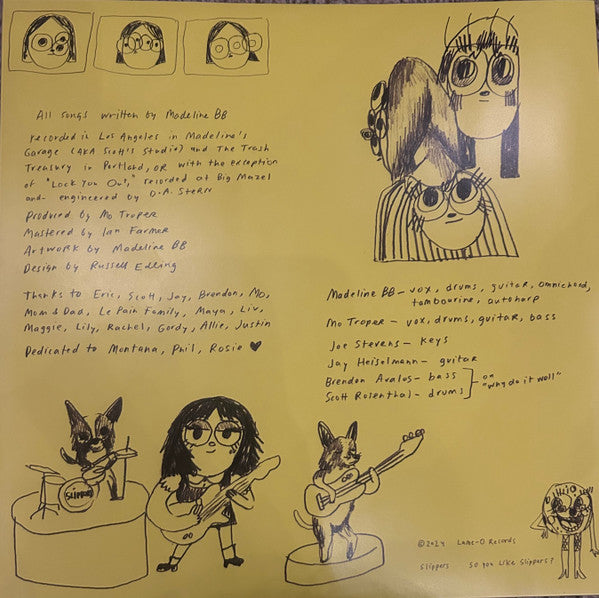 All songs written by Madeline BB
recorded in Los Angeles in Madeline's
Garage (AKA Scott's Studio) and The Trash
Treasury in Portland, OR with the exception
of "Lock You Out," recorded at Big Mazel
and engineered by D.A. Stern
Produced by Mo Troper
Mastered by Ian Farmer
Artwork by Madeline BB
Design by Russell Edling
Thanks to Eric, Scott, Jay, Brendon, Mo,
Mom & Dad, Le Pain Family, Maya, Liv,
Maggie, Lily, Rachel, Gordy, Allie, Justin
Dedicated to Montana, Phil, Rosie ♥
Madeline BB - vox, drums, guitar, omnichord,
tambourine, autoharp
Mo Troper - vox, drums, guitar, bass
Joe Stevens - keys
Jay Heiselmann - guitar
Brendon Avalos - bass
Scott Rosenthal - drums
on
"why do it well"
Slippers
©2024 Lame-O Records
Slippers So you Like Slippers?